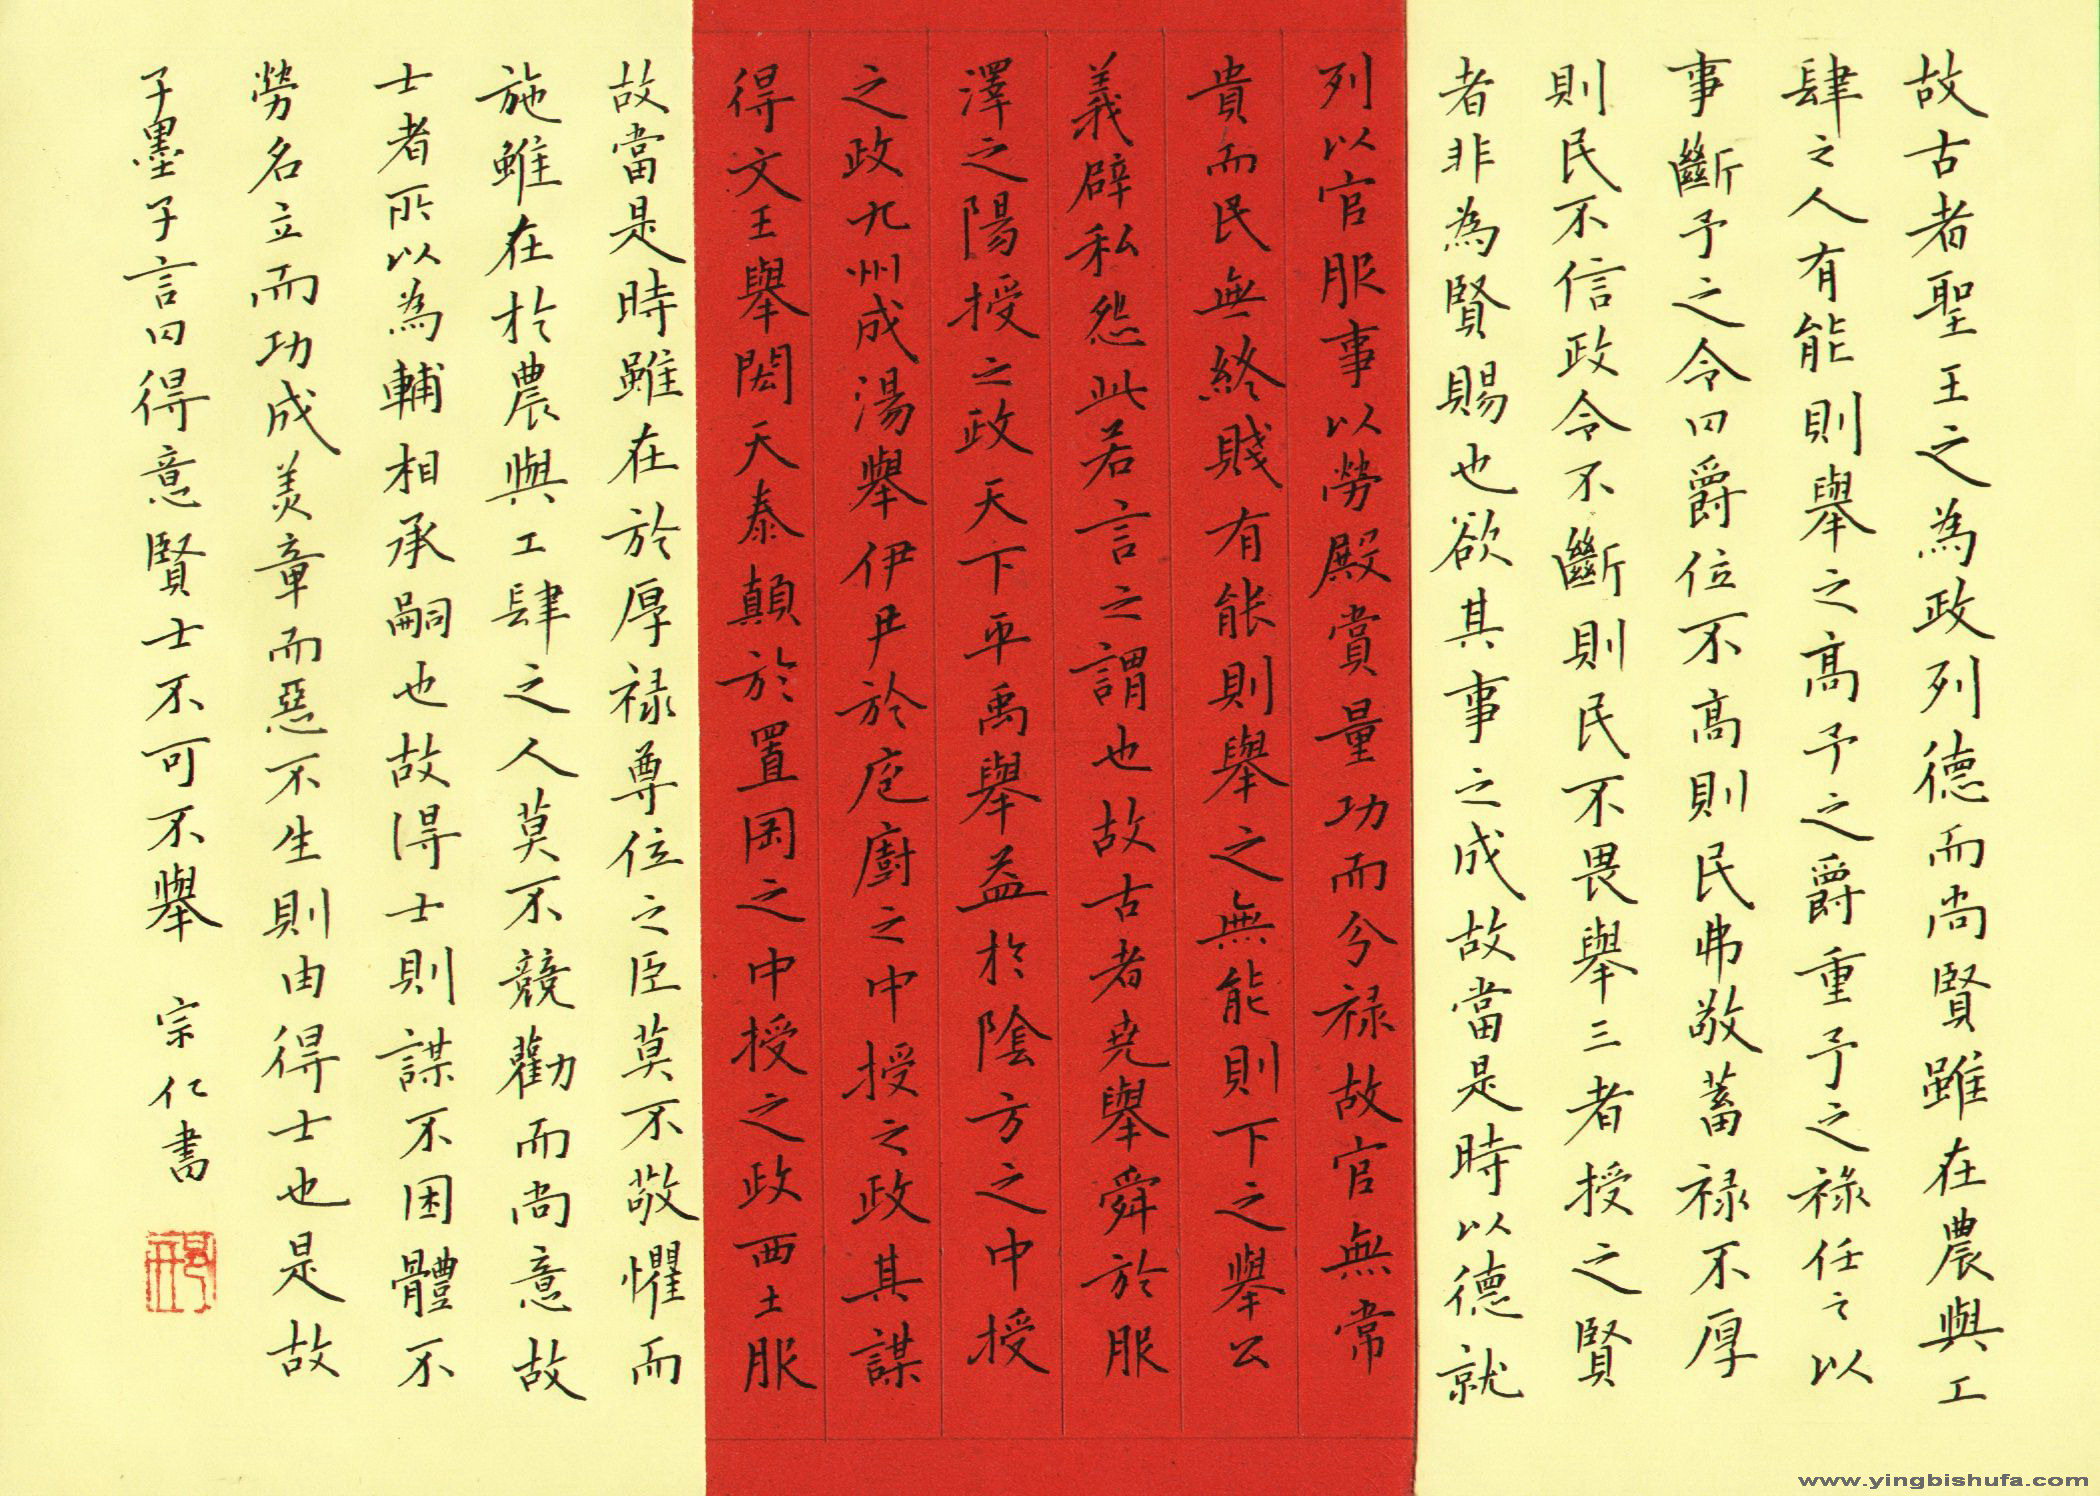 故古者聖王之為政列德而尚賢雖在農與工
肆之人有能則舉之高予之爵重予之祿任之以
事斷予之令曰爵位不高則民弗敬蓄祿不厚
則民不信政令不斷則民不畏舉三者授之賢
者非為賢賜也欲其事之成故當是時以德就
列以官服事以勞殿賞量功而分祿故官無常
貴而民無終賤有能則舉之無能則下之舉公
義辟私怨此若言之謂也故古者堯舉舜於服
澤之陽授之政天下平禹舉益於陰方之中授
之政九州成湯舉伊尹於庖廚之中授之政其謀
得文王舉閎夭泰顛於置罔之中授之政西土服
故當是時雖在於厚祿尊位之臣莫不敬懼而
施雖在於農與工肆之人莫不競勸而尚意故
士者所以為輔相承嗣也故得士則謀不困體不
勞名立而功成美章而惡不生則由得士也是故
子墨子言曰得意賢士不可不舉 宗仁書
www.yingbishufa.com